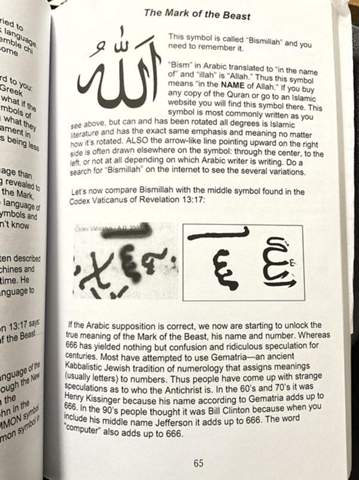 ried to
language
ome
rd to you:
Greek
what if the
mbols of
what they
ament in
s being less
age than
g revealed to
the Mark,
language of
ymbols and
n't know
ten described
chines and
time. He
nguage to
n 13:17 says:
of the Beast
anguage of the
ough the New
the
ohn in the
MMON symbol
mon symbol
The Mark of the Beast
الله
This symbol is called "Bismillah" and you
need to remember it.
"Bism" in Arabic translated to "in the name
of" and "illah" is "Allah." Thus this symbol
means "in the NAME of Allah." If you buy
any copy of the Quran or go to an Islamic
website you will find this symbol there. This
symbol is most commonly written as you
see above, but can and has been rotated degrees is Islamic
literature and has the exact same emphasis and meaning no matter
how it's rotated. ALSO the arrow-like line pointing upward on the right
side is often drawn elsewhere on the symbol: through the center, to the
left, or not at all depending on which Arabic writer is writing. Do a
search for "Bismillah" on the internet to see the several variations.
Let's now compare Bismillah with the middle symbol found in the
Codex Vaticanus of Revelation 13:17:
If the Arabic supposition is correct, we now are starting to unlock the
true meaning of the Mark of the Beast, his name and number. Whereas
666 has yielded nothing but confusion and ridiculous speculation for
centuries. Most have attempted to use Gematria—an ancient
Kabbalistic Jewish tradition of numerology that assigns meanings
(usually letters) to numbers. Thus people have come up with strange
speculations as to who the Antichrist is. In the 60's and 70's it was
Henry Kissinger because his name according to Gematria adds up to
666. In the 90's people thought it was Bill Clinton because when you
include his middle name Jefferson it adds up to 666. The word
"computer" also adds up to 666.
65